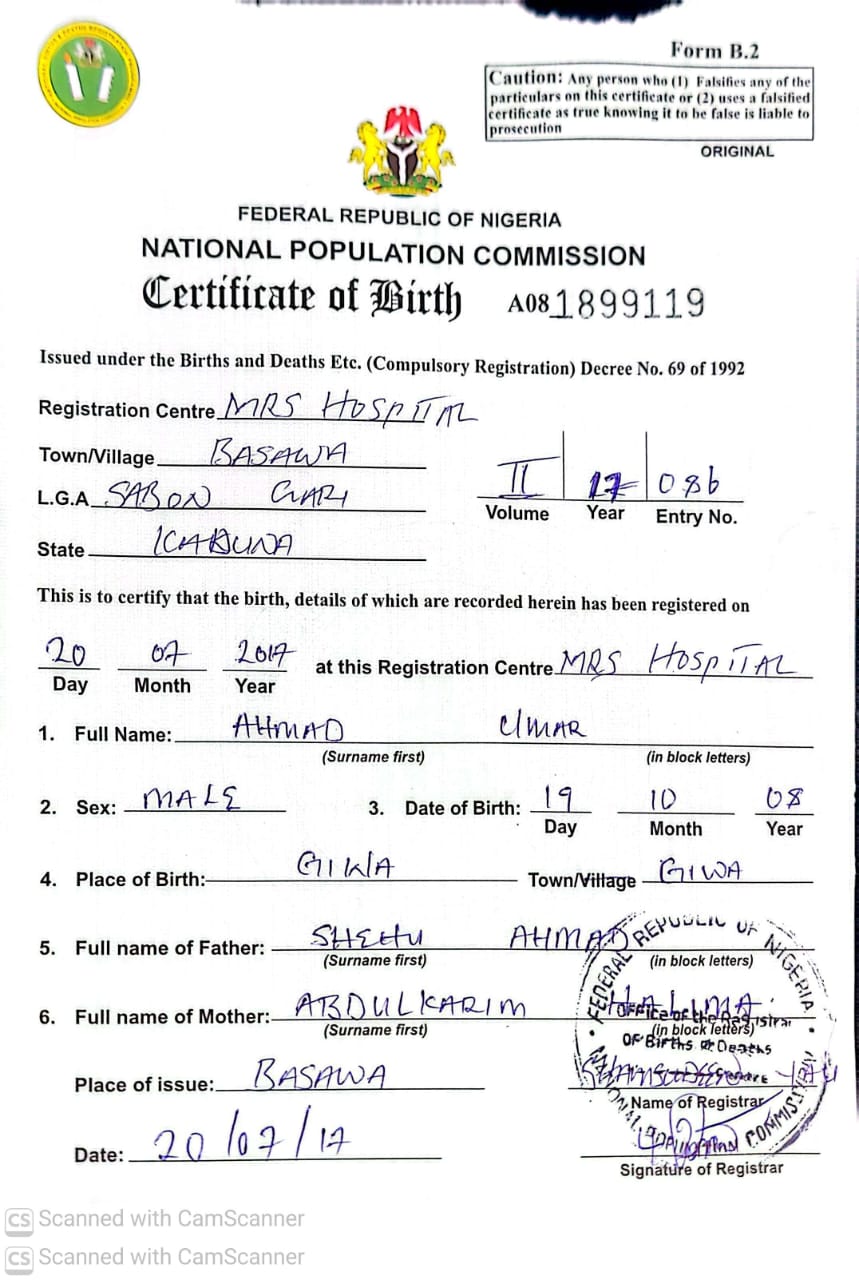 Form B.2
Caution: Any person who (1) Falsifies any of the
particulars on this certificate or (2) uses a falsified
certificate as true knowing it to be false is liable to
prosecution
ORIGINAL
FEDERAL REPUBLIC OF NIGERIA
NATIONAL POPULATION COMMISSION
Certificate of Birth A08 1899119
Issued under the Births and Deaths Etc. (Compulsory Registration) Decree No. 69 of 1992
Registration Centre MRS HOSPITAL
Town/Village BASAWA
L.G.A SABON GARI
II 17 086
Volume Year Entry No.
State KADUNA
This is to certify that the birth, details of which are recorded herein has been registered on
20 07 2017 at this Registration Centre MRS HOSPITAL
Day Month Year
1. Full Name: AHMAD UMAR
(Surname first) (in block letters)
2. Sex: MALE 3. Date of Birth: 19 10 08
Day Month Year
4. Place of Birth: GIWA Town/Village GIWA
5. Full name of Father: SHEHU AHMAD
(Surname first) (in block letters)
6. Full name of Mother: ABDULKARIM HALIMA
(Surname first) (in block letters)
FEDERAL REPUBLIC OF NIGERIA
Office of the Registrar
OF Births & Deaths
NATIONAL POPULATION COMMISSION
Place of issue: BASAWA
Name of Registrar
Date: 20/07/17
Signature of Registrar
CS Scanned with CamScanner
CS Scanned with CamScanner